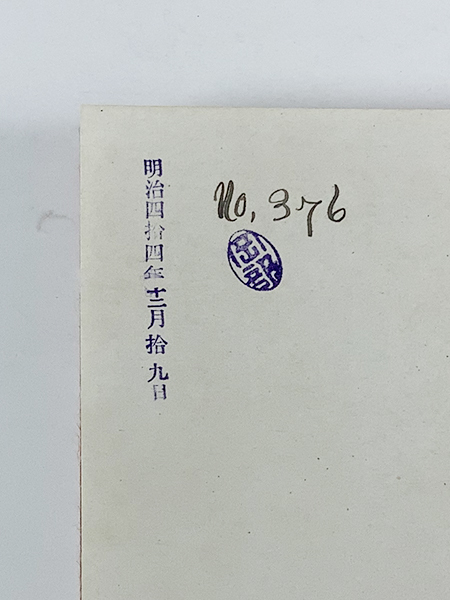 明治四拾四年十二月拾九日
No. 376